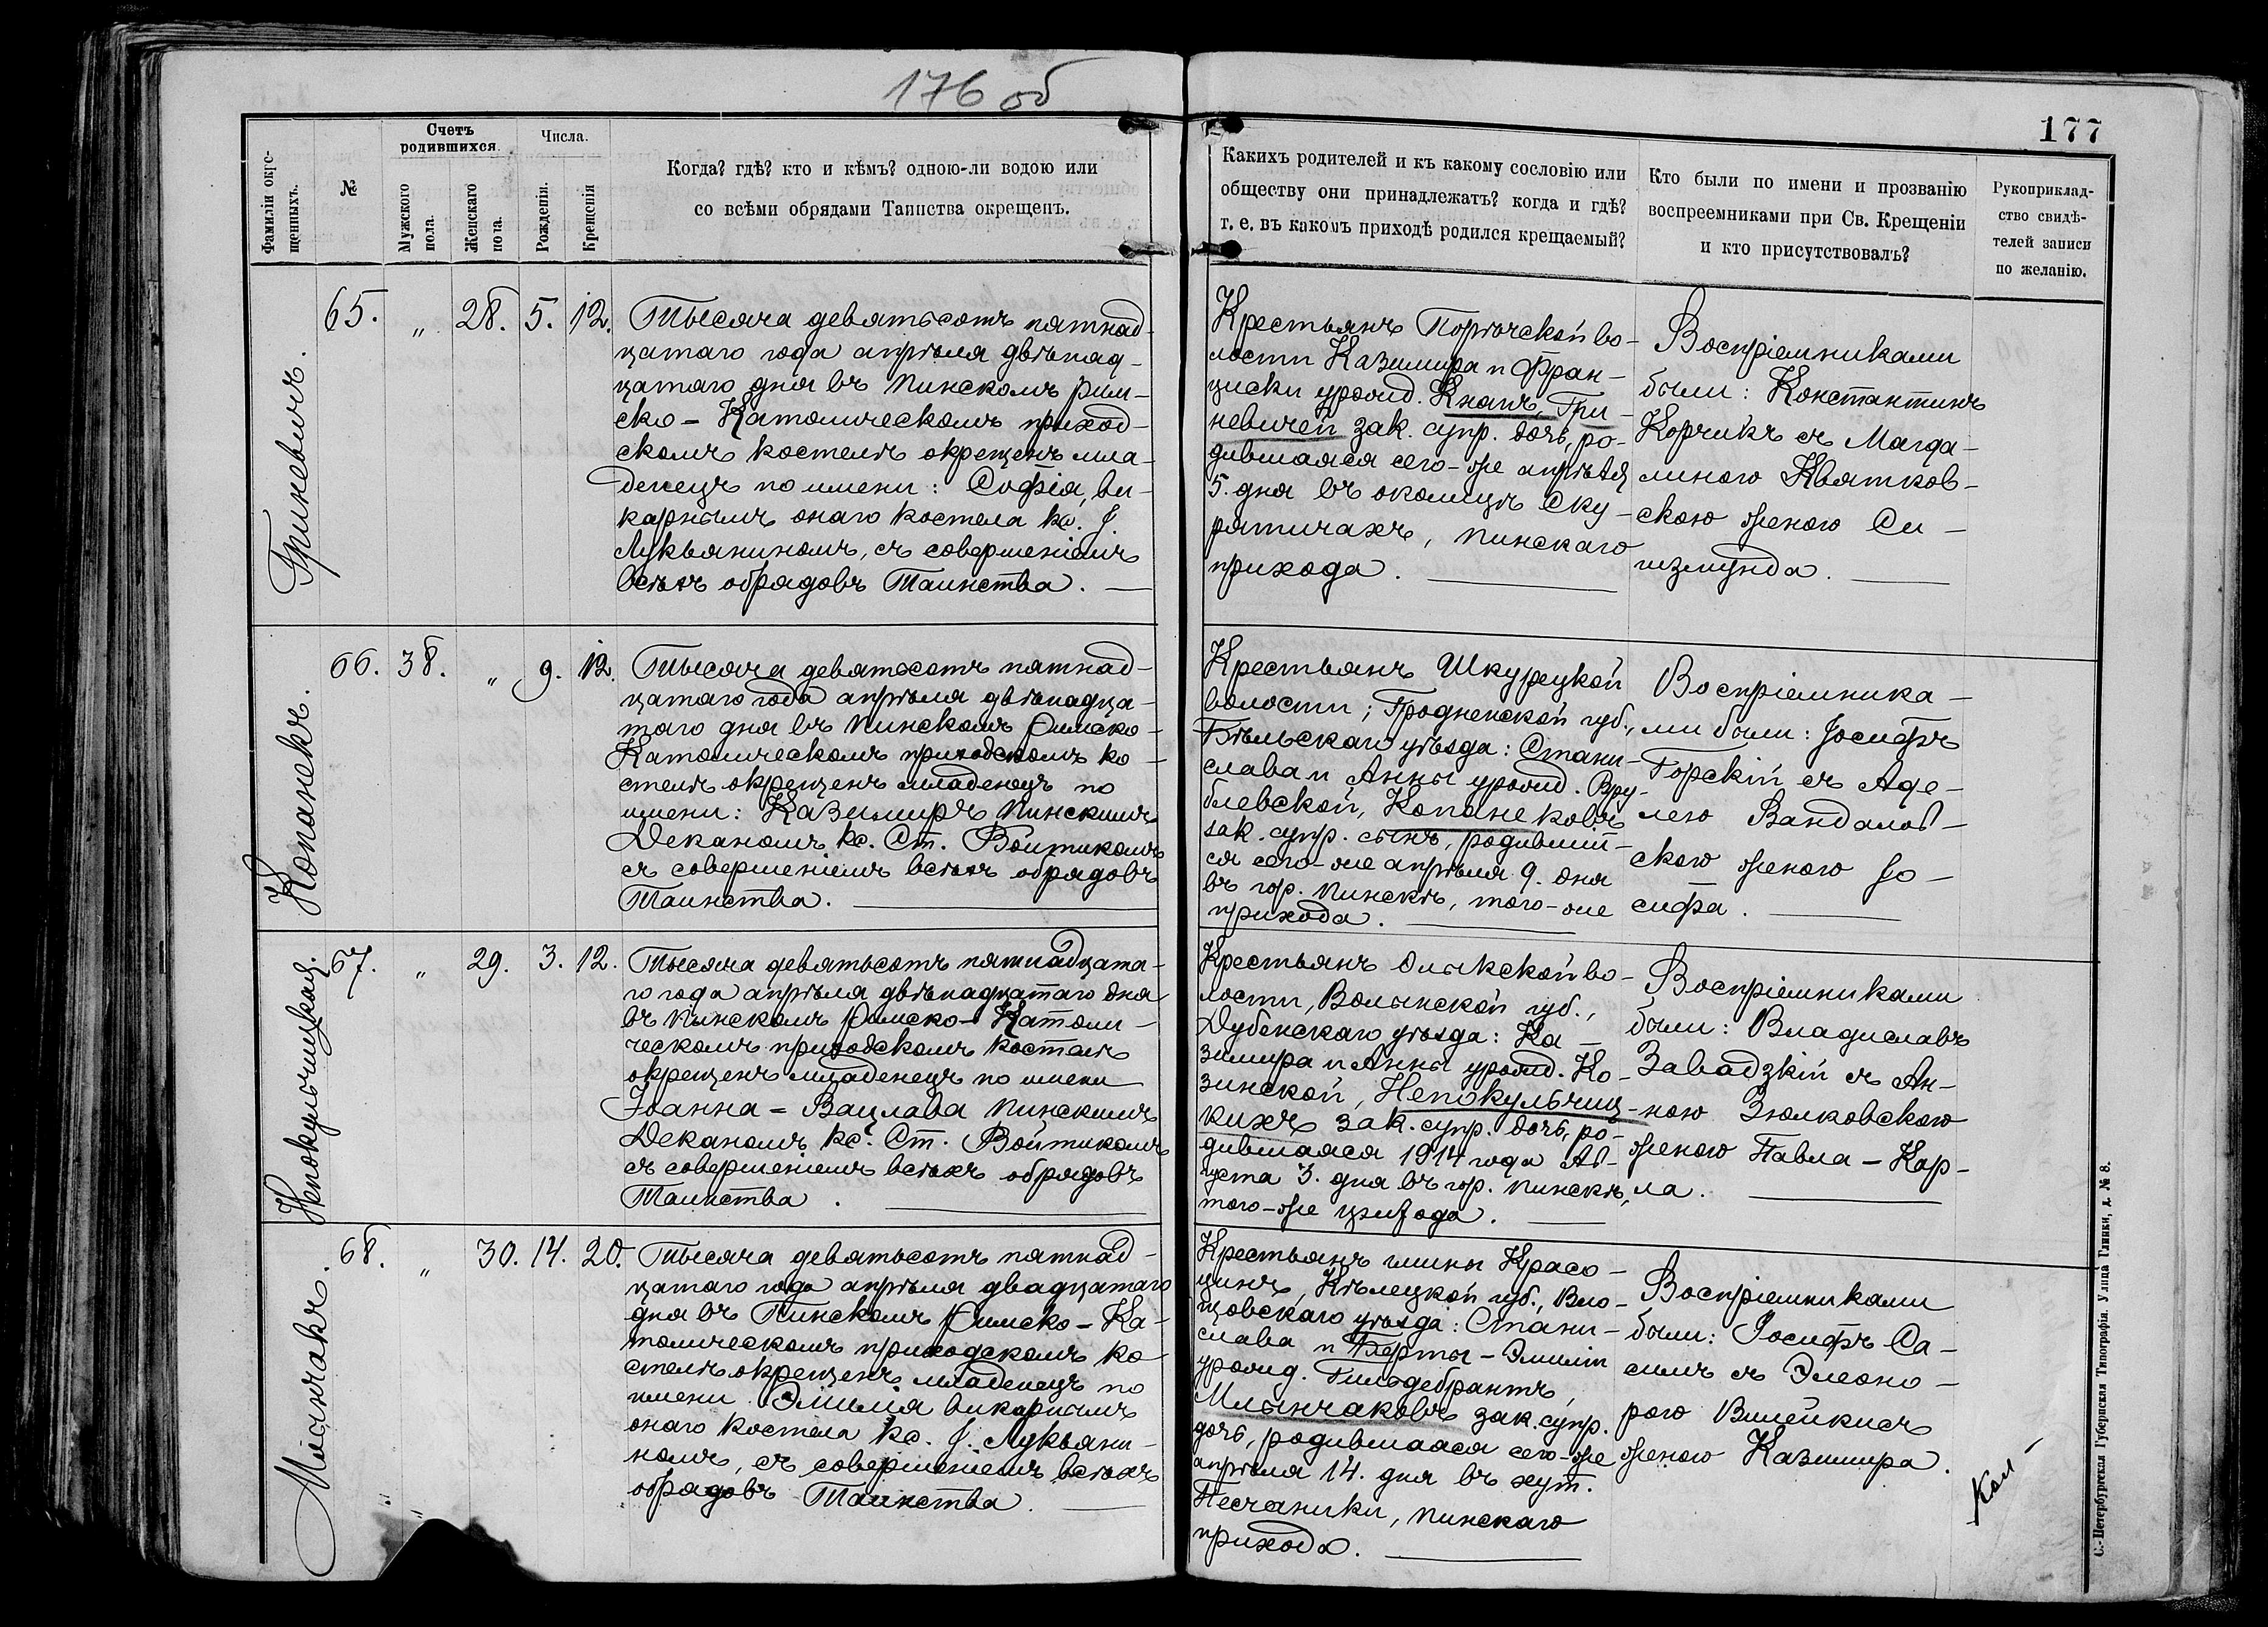 176 об
177
Фамиліи окре-
щенныхъ.
№
Счетъ
родившихся.
Мужского
пола.
Женскаго
пола.
Числа.
Рожденія.
Крещенія
Когда? гдѣ? кто и кѣмъ? одною-ли водою или
со всѣми обрядами Таинства окрещенъ.
Какихъ родителей и къ какому сословію или
обществу они принадлежатъ? когда и гдѣ?
т. е. въ какомъ приходѣ родился крещаемый?
Кто были по имени и прозванію
воспреемниками при Св. Крещеніи
и кто присутствовалъ?
Рукоприклад-
ство свидѣ-
телей записи
по желанію.
Гриневичъ.
65. „ 28. 5. 12.
Тысяча девятьсотъ пятнад-
цатаго года апрѣля двѣнад-
цатаго дня въ Пинскомъ рим-
ско-Католическомъ приход-
скомъ костелѣ окрещенъ мла-
денецъ по имени: Софія, ви-
карнымъ онаго костела кс. J.
Лукьяниномъ, съ совершеніемъ
всѣхъ обрядовъ Таинства.
Крестьянъ Порѣчской во-
лости Казимира и Фран-
циски урожд. Кнапъ, Гри-
невичей зак. супр. дочь, ро-
дившаяся сего-же апрѣля
5. дня въ околицѣ Ску-
ратичахъ, Пинскаго
прихода.
Воспріемниками
были: Константинъ
Корчикъ съ Магда-
линою Квятков-
скою женою Си-
гизмунда.
Копанекъ.
66. 38. „ 9. 12.
Тысяча девятьсотъ пятнад-
цатаго года апрѣля двѣнадца-
таго дня въ Пинскомъ Римско-
Католическомъ приходскомъ ко-
стелѣ окрещенъ младенецъ по
имени: Казимиръ Пинскимъ
Деканомъ кс. Ст. Войтикомъ
съ совершеніемъ всѣхъ обрядовъ
Таинства.
Крестьянъ Шкурецкой
волости; Гродненской губ.,
Бѣльскаго уѣзда: Стани-
слава и Анны урожд. Вру-
блевской, Копанековъ
зак. супр. сынъ, родившій-
ся сего-же апрѣля 9. дня
въ гор. Пинскѣ, того-же
прихода.
Воспріемника-
ми были: Іосифъ
Горскій съ Аде-
лею Вандалов-
скою женою Іо-
сифа.
Непокульчицкая.
67. „ 29. 3. 12.
Тысяча девятьсотъ пятнадцата-
го года апрѣля двѣнадцатаго дня
въ Пинскомъ Римско-Католи-
ческомъ приходскомъ костелѣ
окрещенъ младенецъ по имени
Іоанна-Вацлава Пинскимъ
Деканомъ кс. Ст. Войтикомъ
съ совершеніемъ всѣхъ обрядовъ
Таинства.
Крестьянъ Олыкской во-
лости, Волынской губ.,
Дубенскаго уѣзда: Ка-
зимира и Анны урожд. Ко-
зинской, Непокульчиц-
кихъ зак. супр. дочь, ро-
дившаяся 1914 года Ав-
густа 3. дня въ гор. Пинскѣ,
того-же прихода.
Воспріемниками
были: Владиславъ
Завадзкій съ Ан-
ною Зюлковскою
женою Павла-Кар-
ла.
Млынчакъ.
68. „ 30. 14. 20.
Тысяча девятьсотъ пятнад-
цатаго года апрѣля двадцатаго
дня въ Пинскомъ Римско-Ка-
толическомъ приходскомъ ко-
стелѣ окрещенъ младенецъ по
имени Эмилія викарнымъ
онаго костела кс. J. Лукьяни-
номъ, съ совершеніемъ всѣхъ
обрядовъ Таинства.
Крестьянъ гмины Красо-
цинъ, Кѣлецкой губ., Вло-
щовскаго уѣзда: Стани-
слава и Берты-Эмиліи
урожд. Гильдебрантъ,
Млынчаковъ зак. супр.
дочь, родившаяся сего-же
апрѣля 14. дня въ хут.
Песчаники, Пинскаго
прихода.
Воспріемниками
были: Іосифъ Са-
симъ съ Элеоно-
рою Вилейкисъ
женою Казимира.
С.-Петербургская Губернская Типографія. Улица Глинки, д. № 8.